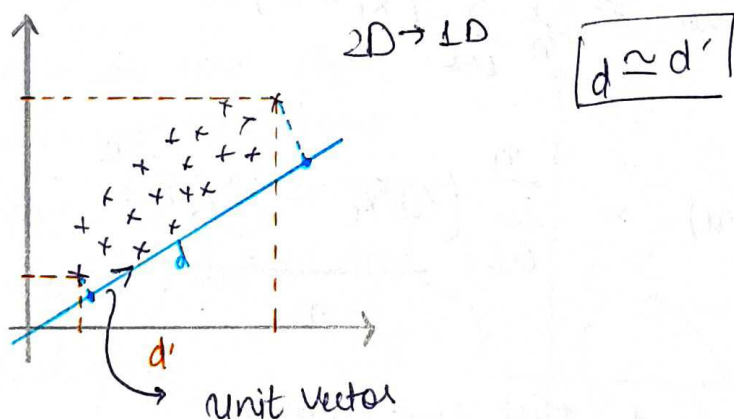 2D → 1D
d ≃ d'
d
d'
unit vector